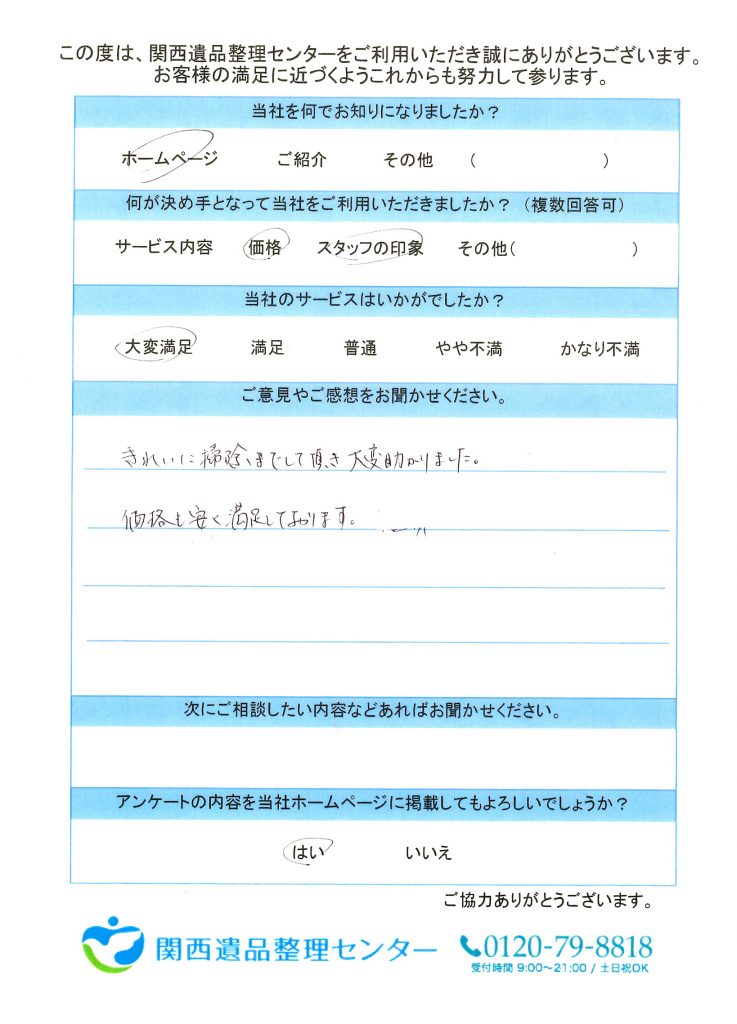 この度は、関西遺品整理センターをご利用いただき誠にありがとうございます。
お客様の満足に近づくようこれからも努力して参ります。
当社を何でお知りになりましたか？
ホームページ ご紹介 その他 （ ）
何が決め手となって当社をご利用いただきましたか？（複数回答可）
サービス内容 価格 スタッフの印象 その他( )
当社のサービスはいかがでしたか？
大変満足 満足 普通 やや不満 かなり不満
ご意見やご感想をお聞かせください。
きれいに掃除までして頂き大変助かりました。
価格も安く満足しております。
次にご相談したい内容などあればお聞かせください。
アンケートの内容を当社ホームページに掲載してもよろしいでしょうか？
はい いいえ
ご協力ありがとうございます。
関西遺品整理センター 0120-79-8818
受付時間 9:00~21:00 / 土日祝OK